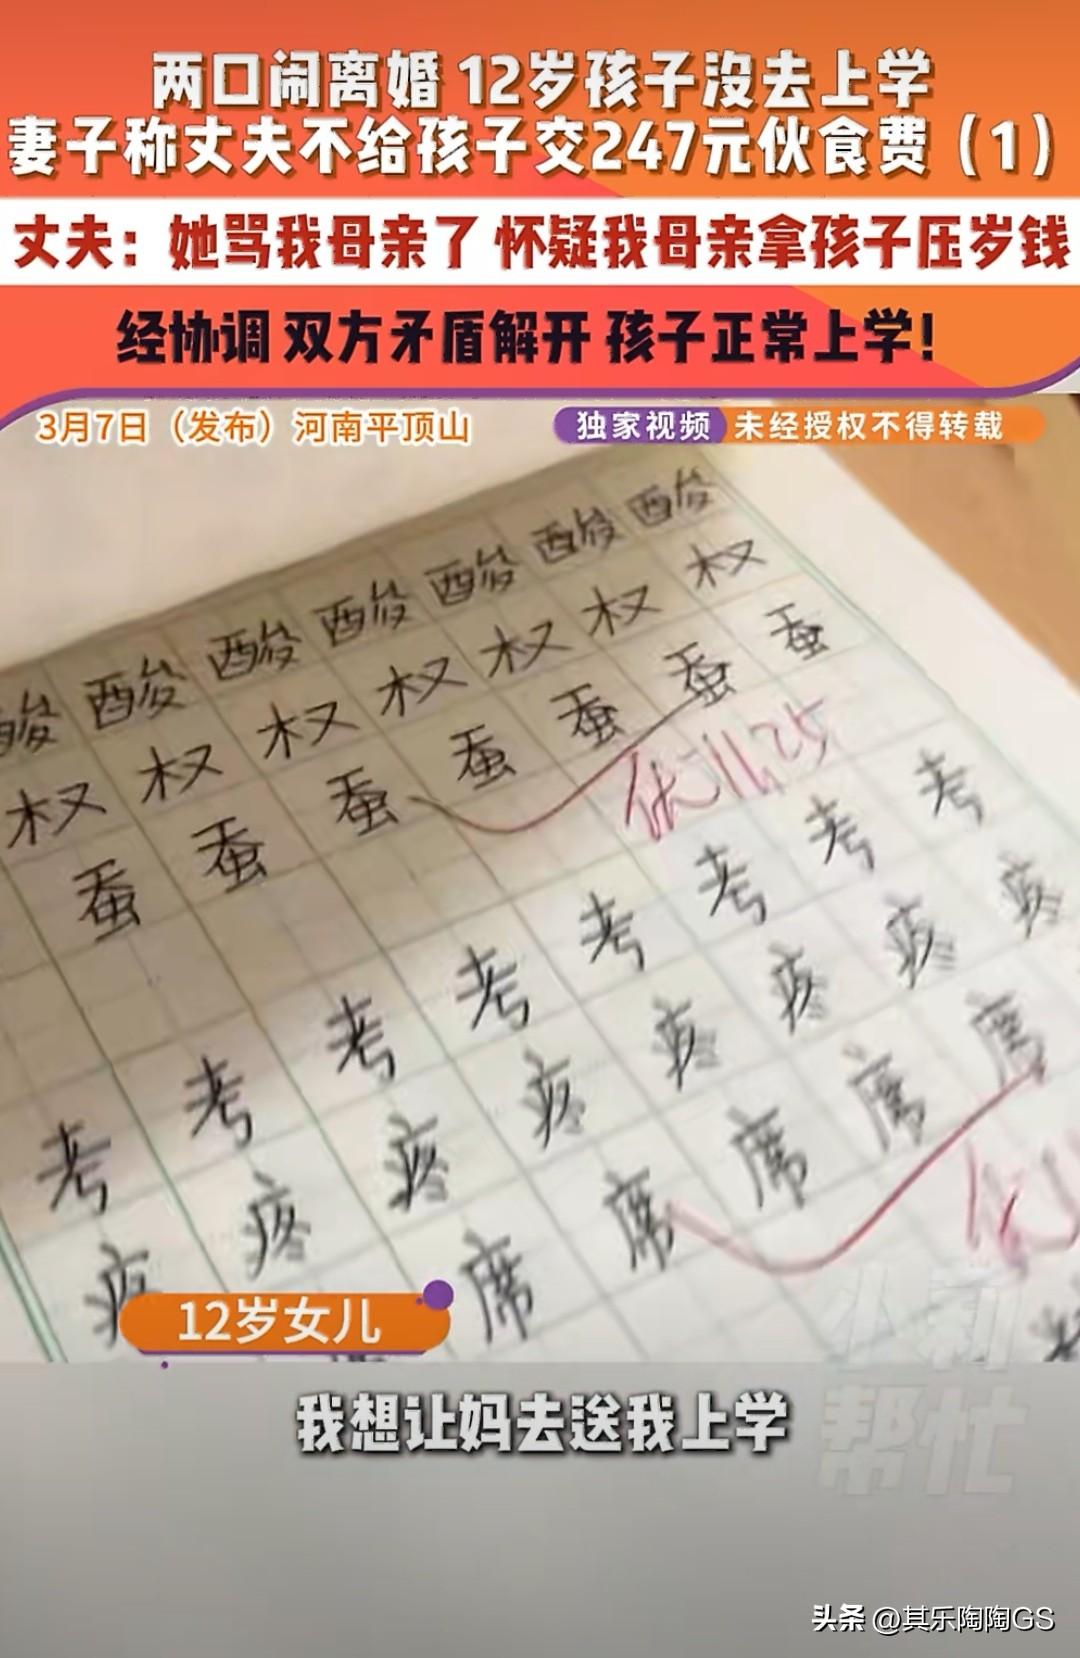 两口闹离婚 12岁孩子没去上学
妻子称丈夫不给孩子交247元伙食费（1）
丈夫：她骂我母亲了 怀疑我母亲拿孩子压岁钱
经协调 双方矛盾解开 孩子正常上学！
3月7日（发布）河南平顶山
独家视频 未经授权不得转载
酸 酸 酸 酸 酸 酸 酸
权 权 权 权 权 权 权
蚕 蚕 蚕 蚕 蚕 蚕 蚕
优 11.25
考 考 考 考 考 考 考 考
疼 疼 疼 疼 疼 疼 疼 疼
席 席 席 席 席
优
12岁女儿
我想让妈去送我上学
小莉帮忙
头条 @其乐陶陶GS